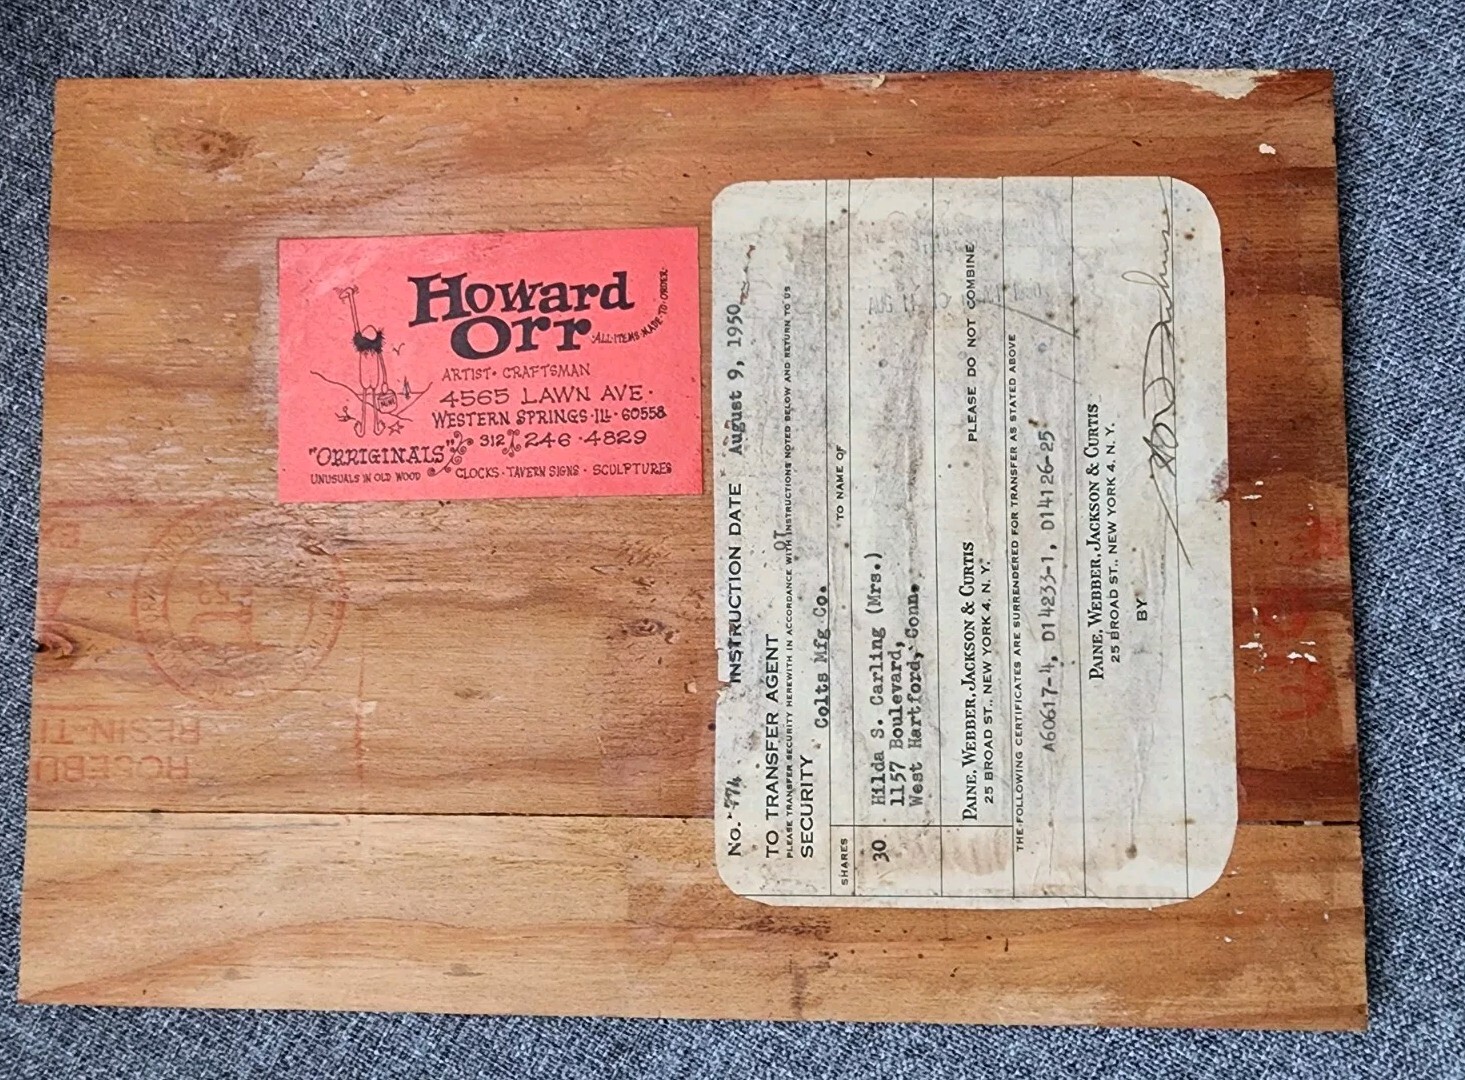 Howard
Orr
·ALL·ITEMS·MADE·TO·ORDER·
ARTIST· CRAFTSMAN
4565 LAWN AVE·
WESTERN SPRINGS·ILL· 60558
312 246·4829
"ORRIGINALS"
UNUSUALS IN OLD WOOD
CLOCKS·TAVERN SIGNS· SCULPTURES
No. 774 INSTRUCTION DATE August 9, 1950
TO TRANSFER AGENT
PLEASE TRANSFER SECURITY HEREWITH IN ACCORDANCE WITH INSTRUCTIONS NOTED BELOW AND RETURN TO US
SECURITY Colts Mfg Co.
SHARES TO NAME OF
30 Hilda S. Carling (Mrs.)
1157 Boulevard,
West Hartford, Conn.
PAINE, WEBBER, JACKSON & CURTIS PLEASE DO NOT COMBINE
25 BROAD ST., NEW YORK 4, N. Y.
THE FOLLOWING CERTIFICATES ARE SURRENDERED FOR TRANSFER AS STATED ABOVE
A60617-4, D14233-1, D14126-25
PAINE, WEBBER, JACKSON & CURTIS
25 BROAD ST., NEW YORK 4, N. Y.
BY
RESIN-TI